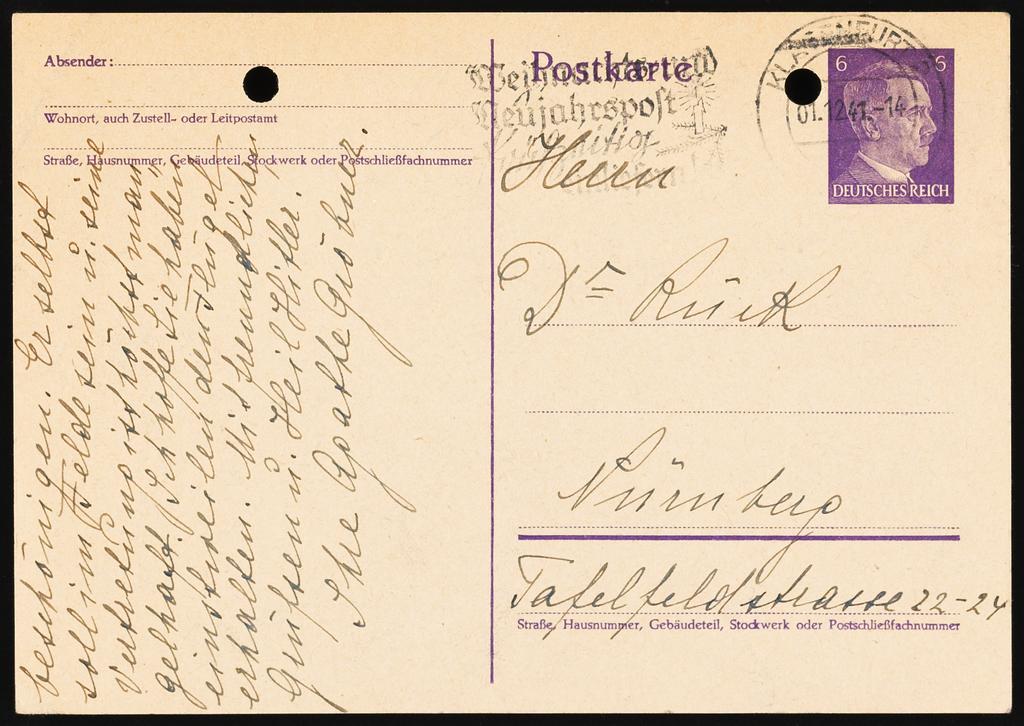 Postkarte
Absender:
Wohnort, auch Zustell- oder Leitpostamt
Straße, Hausnummer, Gebäudeteil, Stockwerk oder Postschließfachnummer
beschönigen. Er selbst
soll im Felde sein u. seine
Vertretung ist höchst man
gelhaft. Ich hoffe Sie haben
einstweilen den Flügel
erhalten. Mit freundlichen
Grüßen u. Heil Hitler.
Ihre Agathe Gröbner.
Weihnachts- und
Neujahrspost
KLAGENFURT
01.12.41.-14
6 6
DEUTSCHES REICH
Herrn
Dr Rück
Nürnberg
Tafelfeldstrasse 22-24
Straße, Hausnummer, Gebäudeteil, Stockwerk oder Postschließfachnummer